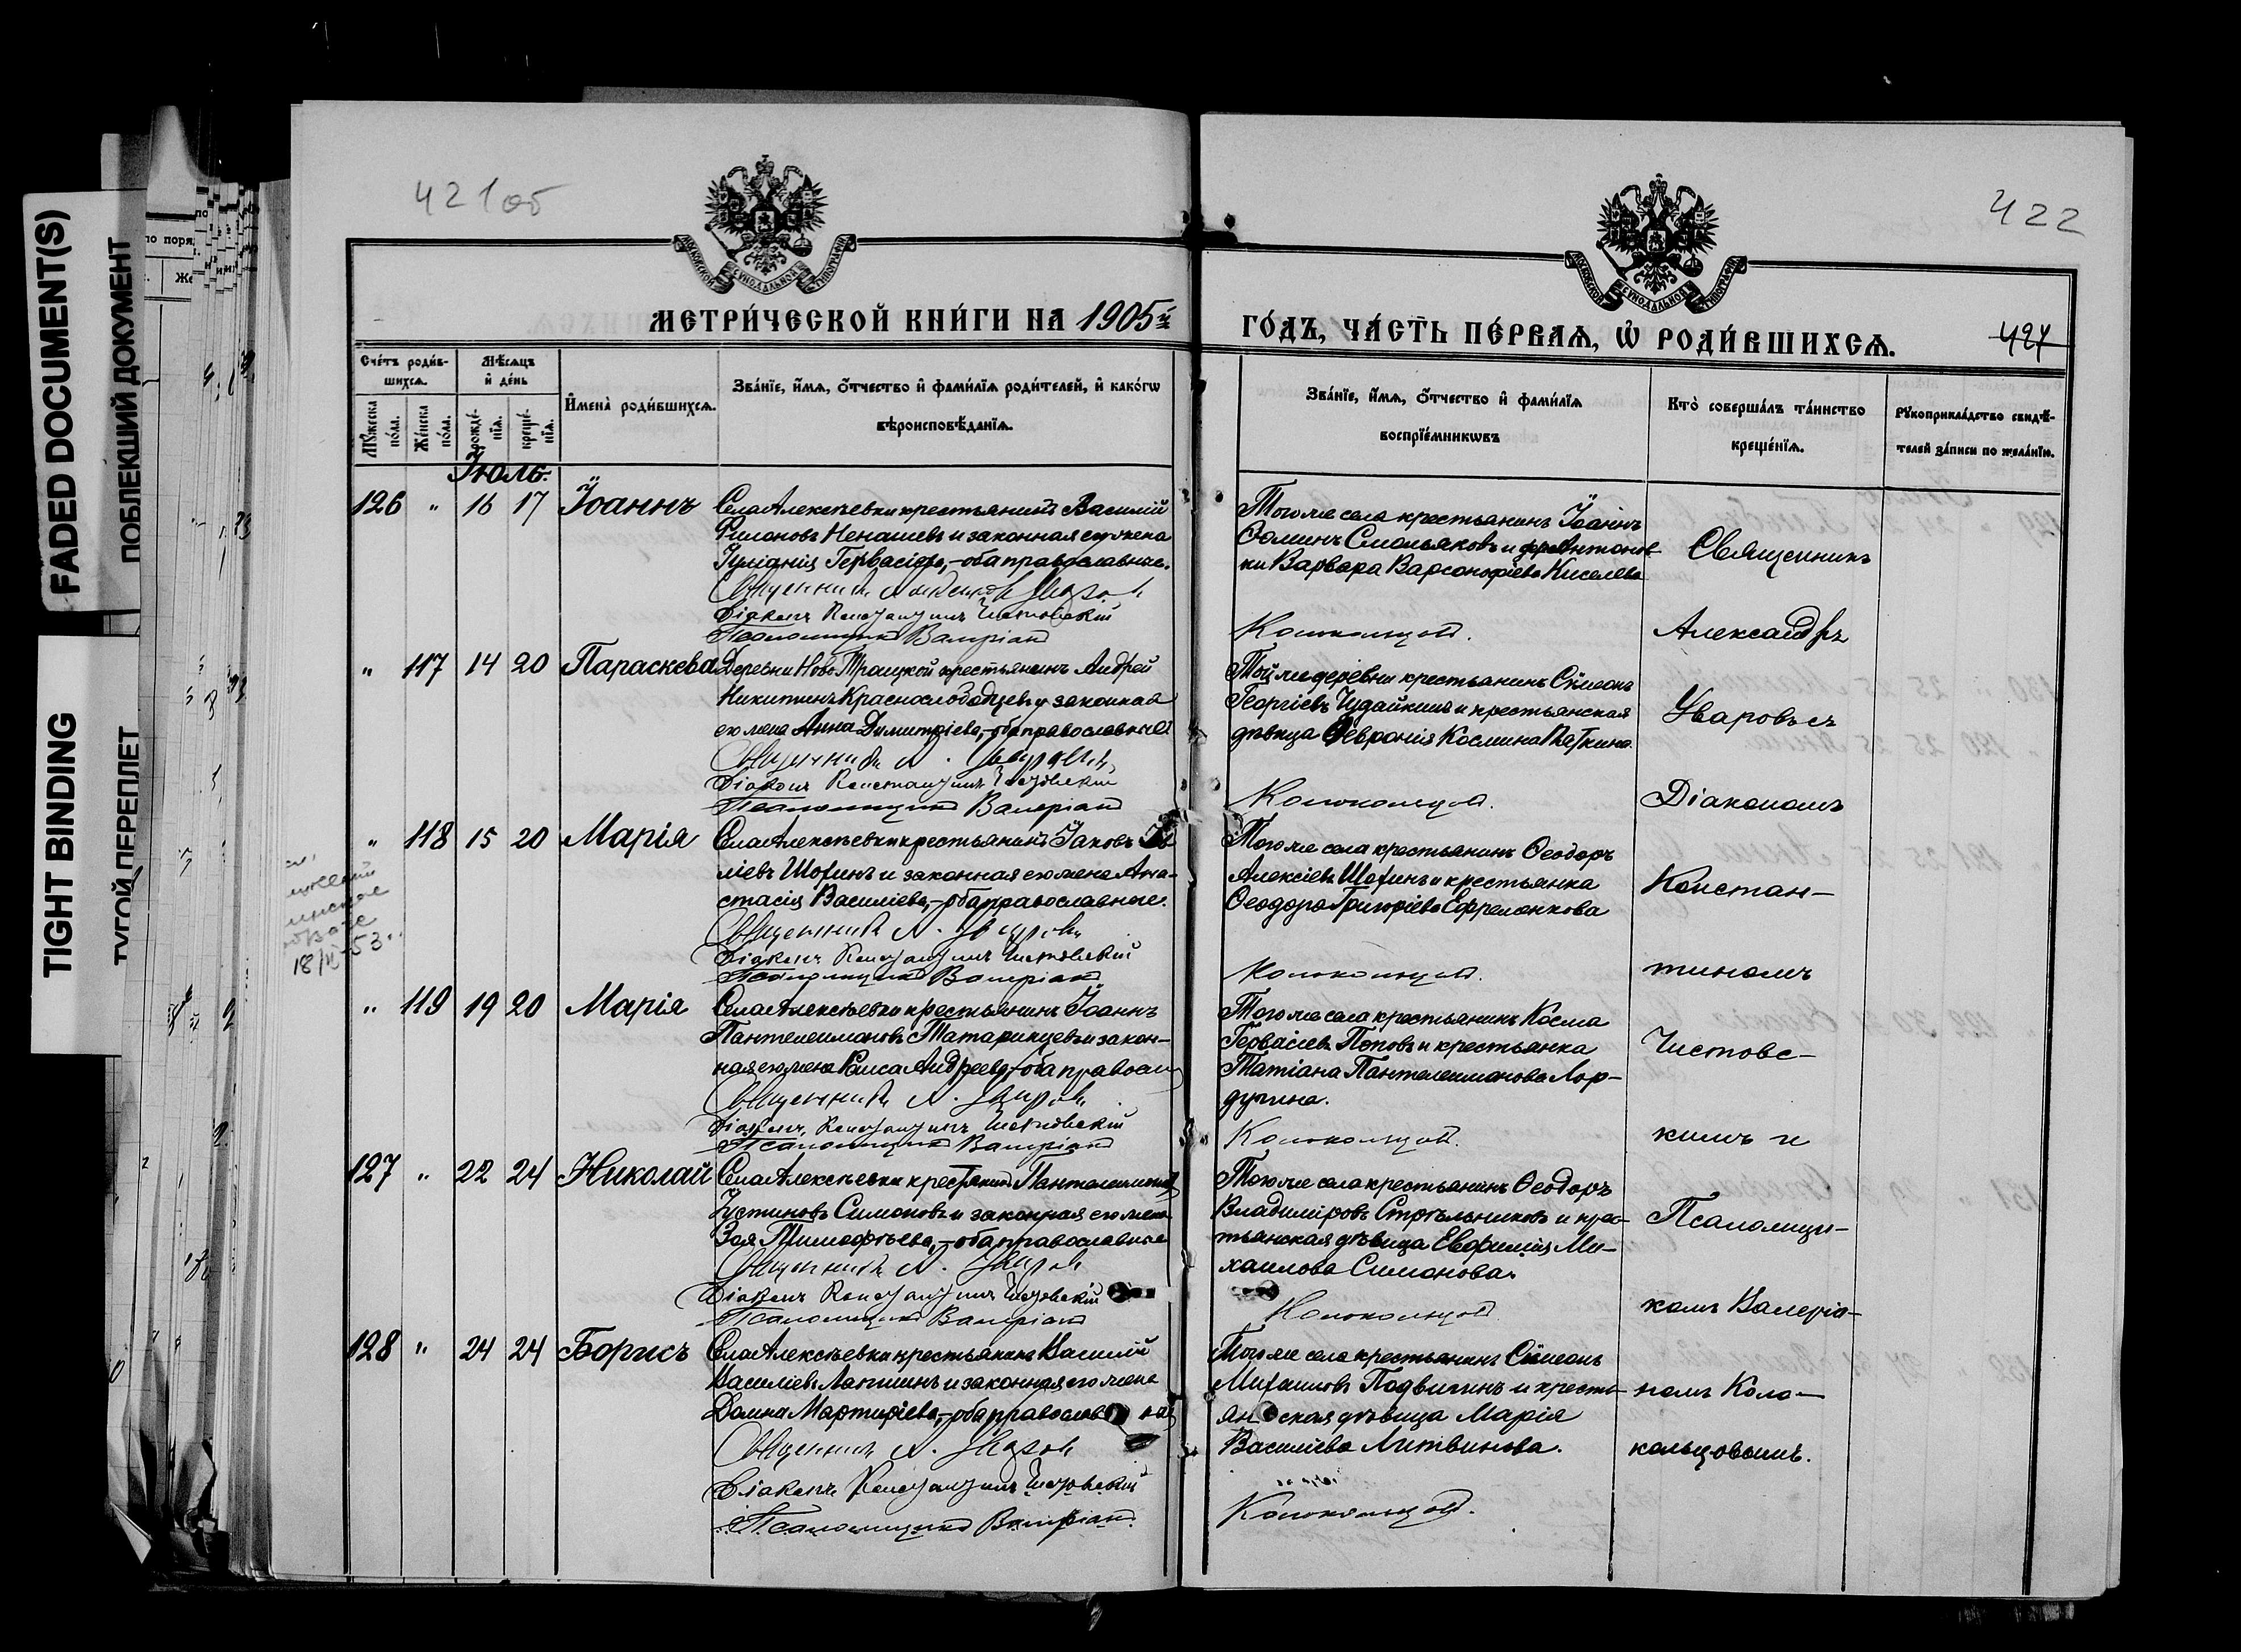 FADED DOCUMENT(S)
ПОБЛЕКШИЙ ДОКУМЕНТ
TIGHT BINDING
ТУГОЙ ПЕРЕПЛЕТ
421об
422
МОСКОВСКОЙ СѴНОДАЛЬНОЙ ТИПОГРАФІИ
МОСКОВСКОЙ СѴНОДАЛЬНОЙ ТИПОГРАФІИ
МЕТРИ́ЧЕСКОЙ КНИ́ГИ НА 1905й
ГО́ДЪ, ЧА́СТЬ ПЕ́РВАѦ, Ѡ҆ РОДИ́ВШИХСѦ.
427
Сче́тъ роди́в-
шихсѧ.
Мꙋ́жеска по́ла.
Же́нска по́ла.
Мѣ́сѧцъ
и҆ де́нь
рожде́-
нїѧ.
креще́-
нїѧ.
И҆мена̀ роди́вшихсѧ.
Зва́нїе, и҆́мѧ, ѻ҆́тчество и҆ фами́лїѧ роди́телей, и҆ како́гѡ
вѣроисповѣ́данїѧ.
Зва́нїе, и҆́мѧ, ѻ҆́тчество и҆ фами́лїѧ
воспрїе́мникѡвъ
Кто̀ соверша́лъ та́инство
креще́нїѧ.
Рꙋкоприкла́дство свидѣ́-
телей за́писи по жела́нїю.
Іюль.
126 " 16 17 Іоаннъ
Села Алексѣевки крестьянинъ Василій
Филоновъ Ненашевъ и законная его жена
Гервасіева,-оба православные.
Священникъ Александръ Уваровъ
Діаконъ Константинъ Чистовскій
Псаломщикъ Валеріанъ
Того же села крестьянинъ Іоаннъ
Ѳоминъ Смольяковъ и
Варвара Варсонофіева Киселева
Колокольцовъ.
Священникъ
Александръ
" 117 14 20 Параскева
Деревни Ново Троицкой крестьянинъ Андрей
Никитинъ Краснослободцевъ и законная
его жена Анна Димитріева,-оба православные
Священникъ А. Уваровъ
Діаконъ Константинъ Чистовскій
Псаломщикъ Валеріанъ
Той же деревни крестьянинъ Сѵмеонъ
Георгіевъ Чудайкинъ и крестьянская
дѣвица Февронія Космина Пяткина
Колокольцовъ.
Уваровъ съ
Діакономъ
" 118 15 20 Марія
Села Алексѣевки крестьянинъ Іаковъ
Шохинъ и законная его жена Ана-
стасія Василіева,-оба православные.
Священникъ А. Уваровъ
Діаконъ Константинъ Чистовскій
Псаломщикъ Валеріанъ
Того же села крестьянинъ Ѳеодоръ
Алексіевъ Шохинъ и крестьянка
Ѳеодора Григоріева Ефременкова
Колокольцовъ.
Констан-
тиномъ
18/II-53
" 119 19 20 Марія
Села Алексѣевки крестьянинъ Іоаннъ
Пантелеимоновъ Татаринцевъ и закон-
ная его жена Раиса Андреева,-оба правосл
Священникъ А. Уваровъ
Діаконъ Константинъ Чистовскій
Псаломщикъ Валеріанъ
Того же села крестьянинъ Косма
Гервасіевъ Поповъ и крестьянка
Татіана Пантелеимонова Лор-
дугина.
Колокольцовъ.
Чистовс-
кимъ и
127 " 22 24 Николай
Села Алексѣевки крестьянинъ Пантелеимонъ
Іустиновъ Симоновъ и законная его жена
Зоя Тимофѣева,-оба православные
Священникъ А. Уваровъ
Діаконъ Константинъ Чистовскій
Псаломщикъ Валеріанъ
Того же села крестьянинъ Ѳеодоръ
Владиміровъ Стрѣльниковъ и крес-
тьянская дѣвица Евфимія Ми-
хаилова Симонова.
Колокольцовъ
Псаломщи-
комъ Валеріа-
128 " 24 24 Борисъ
Села Алексѣевки крестьянинъ Василій
Василіевъ Лапшинъ и законная его жена
Домна Мартиріева,-оба православ
Священникъ А. Уваровъ
Діаконъ Константинъ Чистовскій
Псаломщикъ Валеріанъ
Того же села крестьянинъ Сѵмеонъ
Михаиловъ Подвигинъ и кресть-
янская дѣвица Марія
Василіева Литвинова.
Колокольцовъ.
номъ Коло-
кольцовымъ.